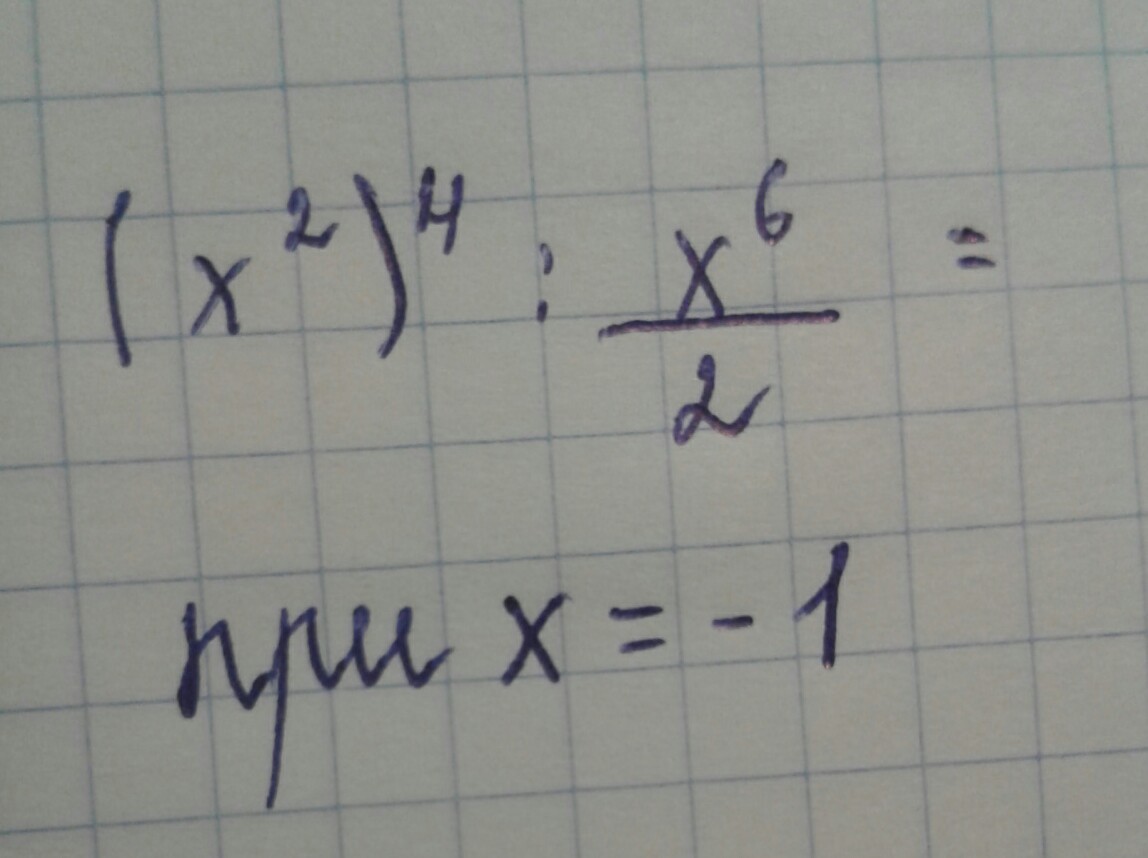 (x²)⁴ : x⁶/2 =
при x = - 1